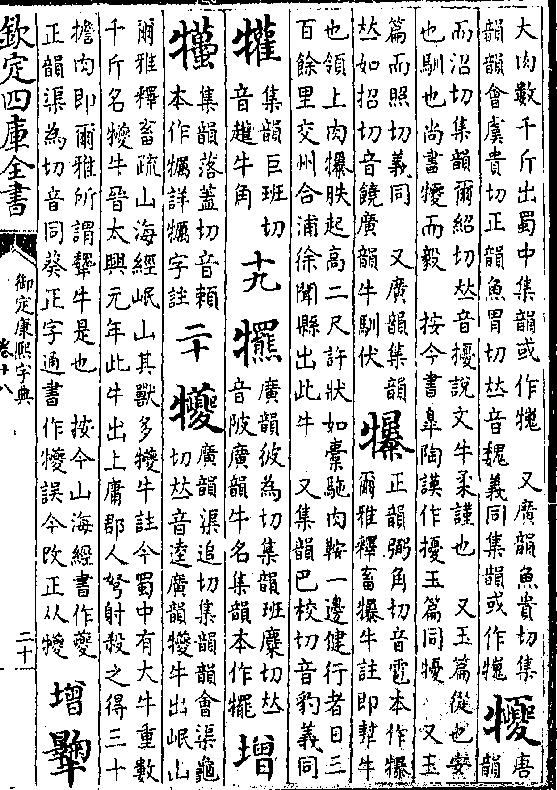 大肉數千斤出蜀中集韻或作犩　又廣韻魚貴切集
韻韻會虞貴切正韻魚胃切𠀤音魏義同集韻或作犩
㹛
唐韻
而沼切集韻爾紹切𠀤音擾說文牛柔謹也　又玉篇從也䋣
也馴也尚書㹛而毅　按今書臯陶謨作擾玉篇同㹛　又玉
篇而照切義同　又廣韻集韻
𠀤如招切音饒廣韻牛馴伏
犦
正韻弼角切音雹本作犦
爾雅釋畜犦牛註即犎牛
也領上肉犦胅起高二尺許狀如橐駝肉鞍一邊健行者日三
百餘里交州合浦徐聞縣出此牛　又集韻巴校切音豹義同
㹕
集韻巨班切
音趯牛角
十九
犤
廣韻彼為切集韻班麋切𠀤
音陂廣韻牛名集韻本作犤
增
集韻落蓋切音賴
本作犡詳犡字註
二十
犪
廣韻渠追切集韻韻會渠龜
切𠀤音逵廣韻犪牛出岷山
爾雅釋畜疏山海經岷山其獸多犪牛註今蜀中有大牛重數
千斤名犪牛晉太興元年此牛出上庸郡人弩射殺之得三十
擔肉即爾雅所謂犩牛是也　按今山海經書作夔
正韻渠為切音同葵正字通書作犪誤今改正从犪
增
欽定四庫全書
御定康熙字典
卷十八
二十